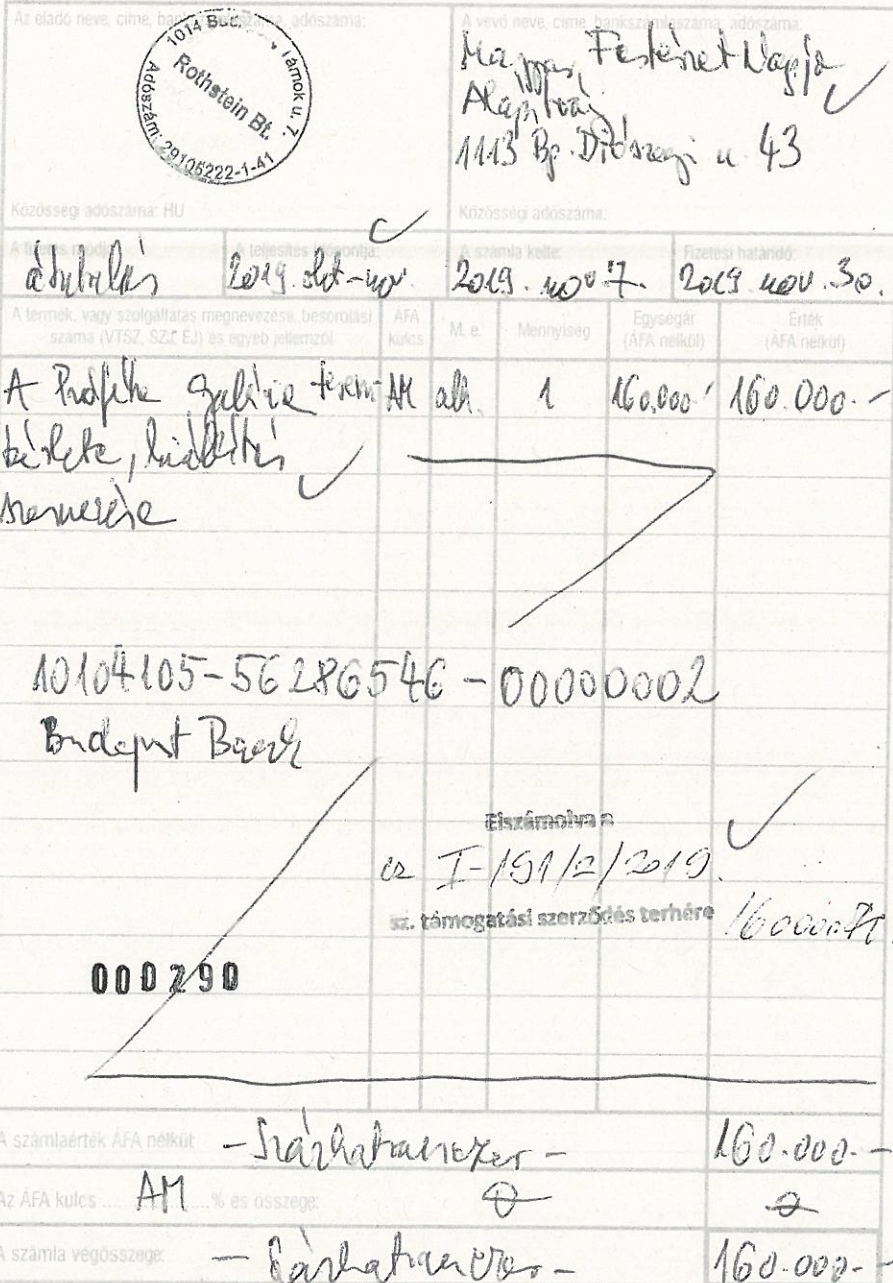 Az eladó neve, címe, bankszámlaszáma, adószáma:
1014 Bud. Tárnok u. 7.
Rothstein Bt.
Adószám: 29105222-1-41
Közösségi adószáma: HU
A vevő neve, címe, bankszámlaszáma, adószáma:
Magyar Festészet Napja
Alapítvány
1113 Bp. Diószegi u 43
Közösségi adószáma:
A fizetés módja: A teljesítés időpontja: A számla kelte: Fizetési határidő:
átutalás 2019. okt-nov. 2019. nov. 7. 2019 nov. 30.
A termék, vagy szolgáltatás megnevezése, besorolási száma (VTSZ, SZJ, ÉJ) és egyéb jellemzői ÁFA kulcs M. e. Mennyiség Egységár (ÁFA nélkül) Érték (ÁFA nélkül)
A Próféta Galéria terem- AM alk. 1 160.000 160.000.-
bérlete, kiállítás
szervezése
10104105-56286546-00000002
Budapest Bank
Elszámolva a
az I-191/2/2019.
sz. támogatási szerződés terhére 160000 Ft
000290
A számlaérték ÁFA nélkül: - Százhatvanezer - 160.000.-
Az ÁFA kulcs AM % és összege: 0 0
A számla végösszege: - Százhatvanezer - 160.000.-